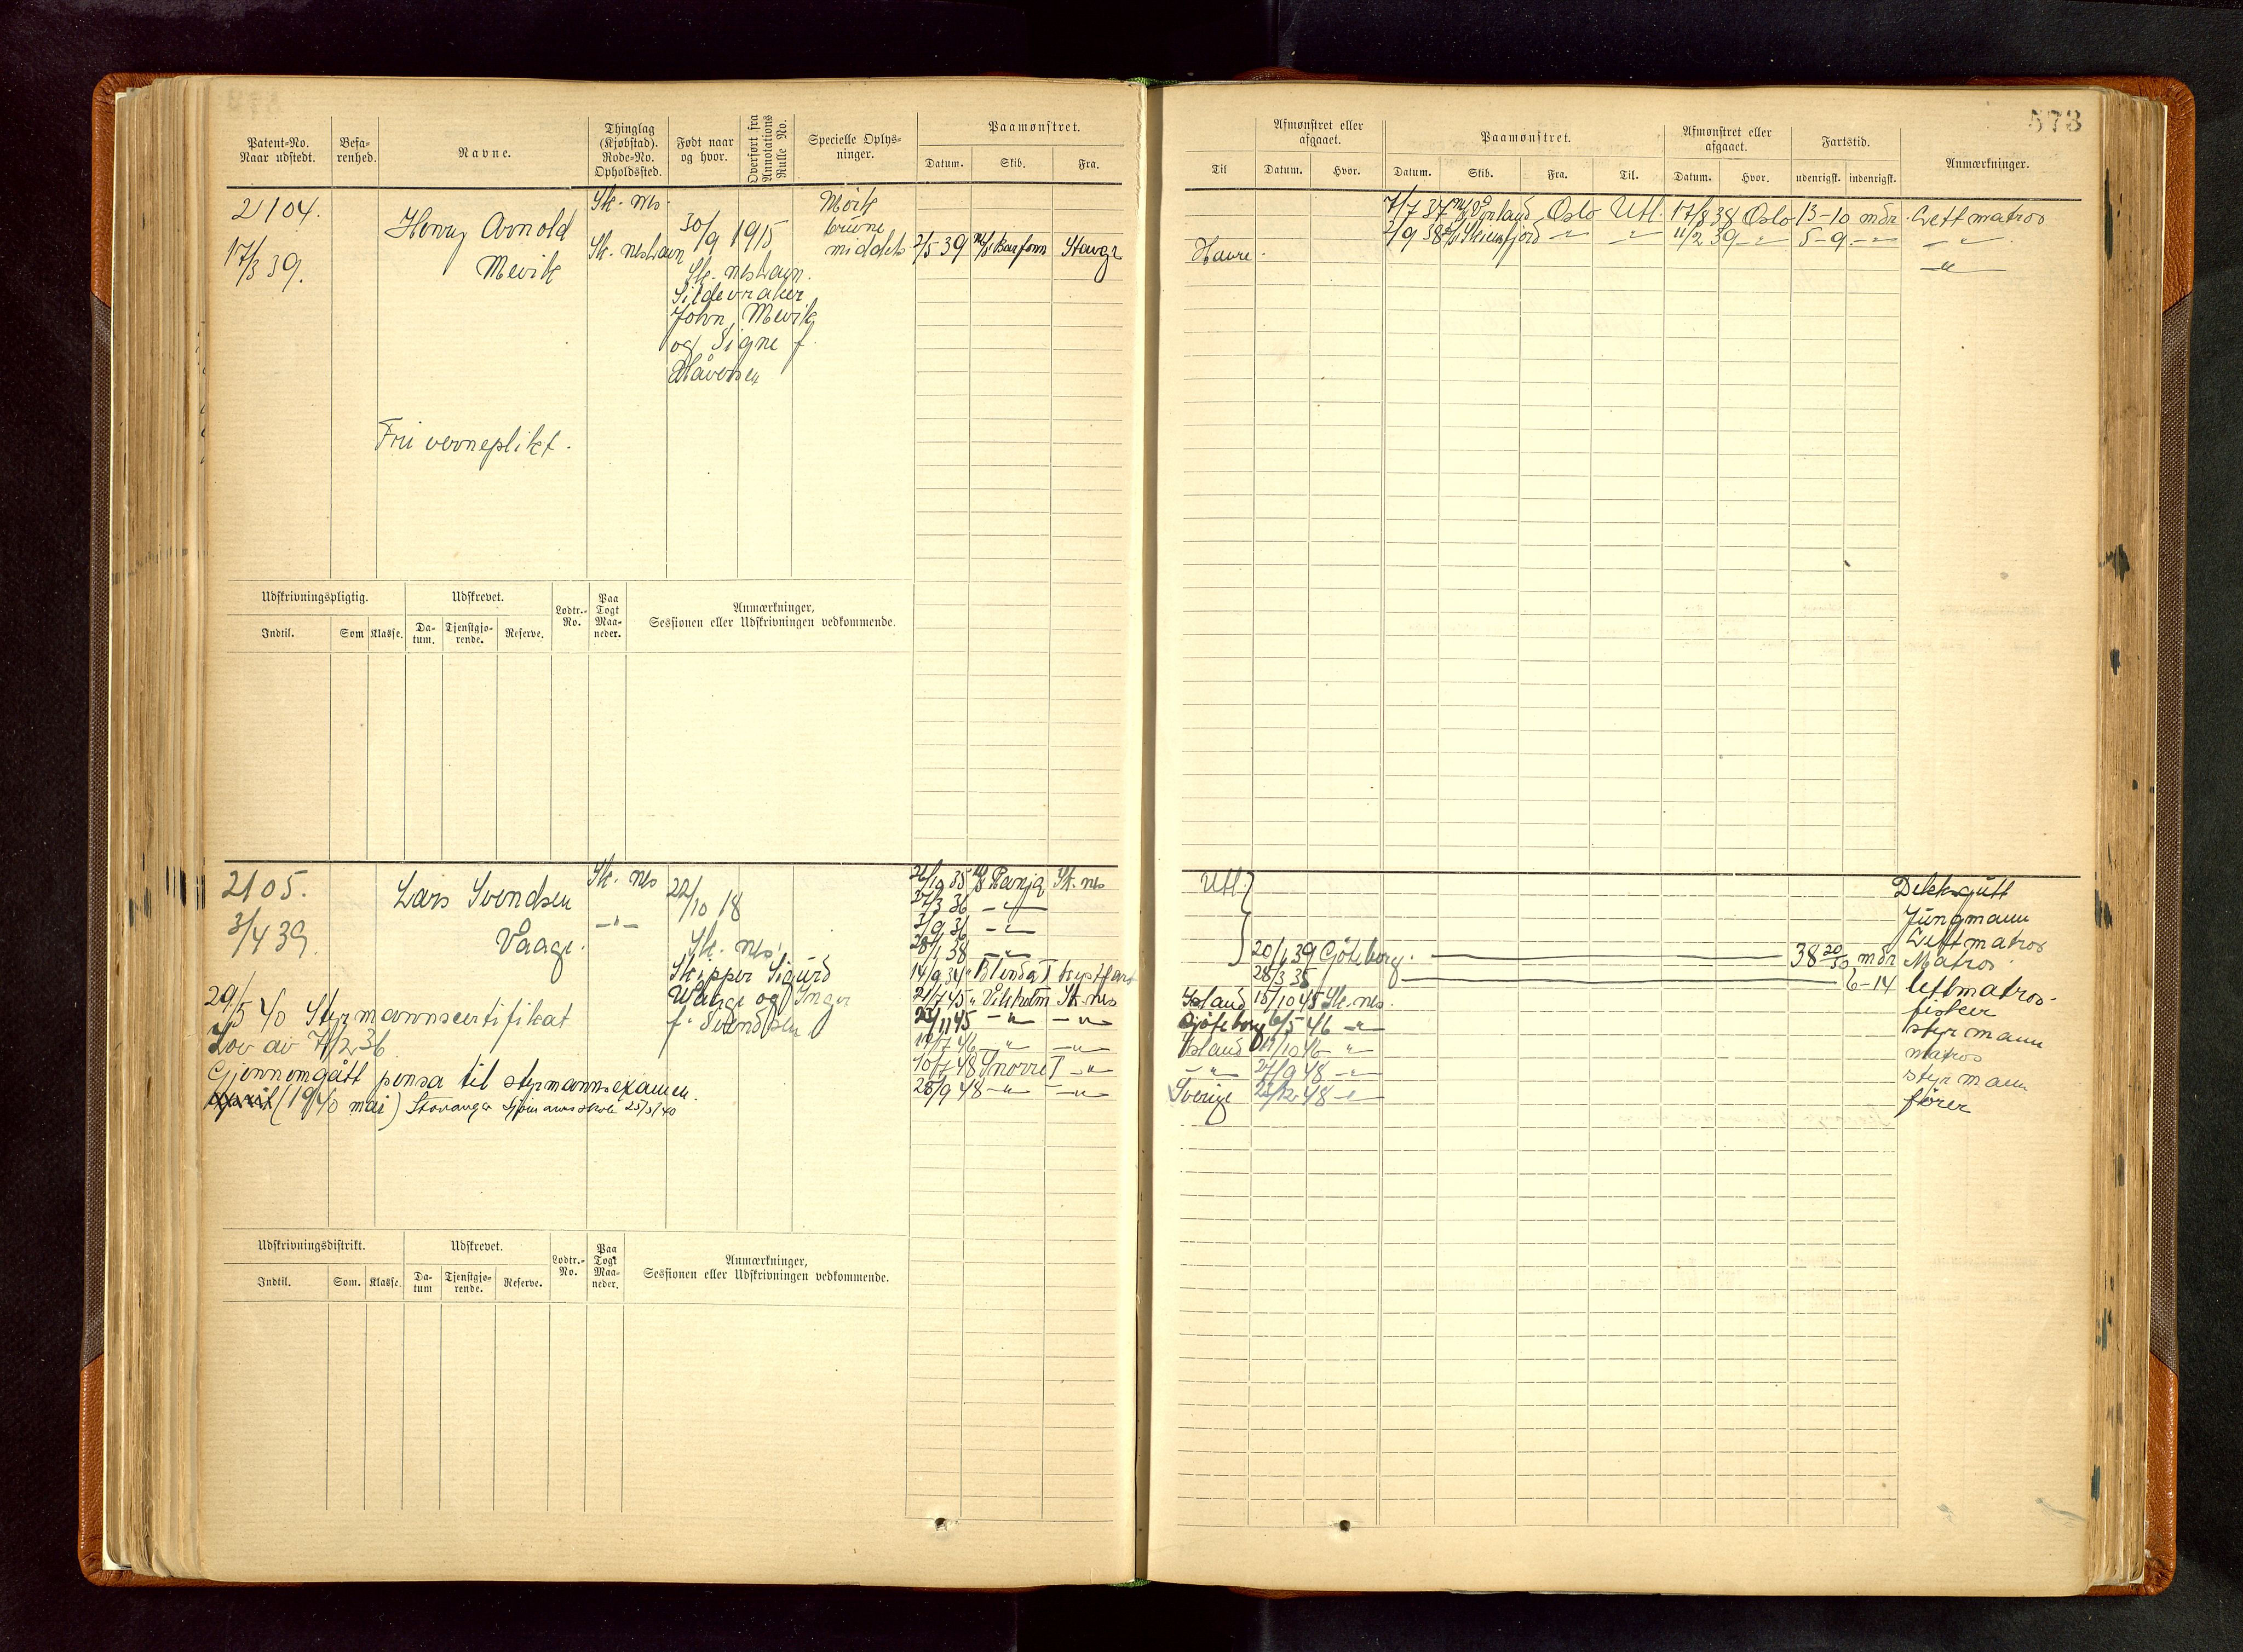 573
Patent-No. Naar udstedt.
Befarenhed.
Navne.
Thinglag (Kjøbstad). Rode-No. Opholdssted.
Født naar og hvor.
Overført fra Annotations Rulle No.
Specielle Oplysninger.
Paamønstret.
Datum. Skib. Fra.
Til
Afmønstret eller afgaaet.
Datum. Hvor.
Paamønstret.
Datum. Skib. Fra. Til.
Afmønstret eller afgaaet.
Datum. Hvor.
Fartstid.
udenrigsk. indenrigsk.
Anmærkninger.
2104.
17/3 39.
Henry Arnold
Mevik
Sk. nes.
Sk. neshavn
30/9 1915
Sk. neshavn.
Sildevraker
John Mevik
og Signe f.
Håversen
Mørk
brune
middels
2/5 39 Stavgr
Havre.
7/7 37 Oslo Utl. 17/8 38 Oslo 13-10 mdr. Lettmatros
2/9 38 Skiensfjord -"- -"- 11/2 39 -"- 5-9 -"- -"-
-"-
Fri verneplikt.
Udskrivningspligtig.
Indtil. Som Klasse.
Udskrevet.
Datum. Tjenstgjørende. Reserve.
Lodtr.-No.
Paa Togt Maaneder.
Anmærkninger,
Sessionen eller Udskrivningen vedkommende.
2105.
3/4 39.
Lars Svendsen
Vaage.
Sk. nes
-"-
22/10 18
Sk. nes.
Skipper Sigurd
Waage og Inger
f. Svendsen
29/5 40 Styrmannscertifikat
Lov av 7/2 36
Gjennomgått pensa til styrmannsexamen.
(1940 mai) Stavanger Sjømannsskole 25/5/40
26/10 35 Ranja Sk. nes Utl. Dekksgutt
27/3 36 -"- Jungmann
3/9 36 -"- Lettmatros
28/1 38 -"- 20/1 39 Göteborg. 38 20/30 mdr Matros
14/9 34 Blenda I kystfart 28/3 35 6-14 lettmatros
21/7 45 " Vikholm Sk. nes Island 15/10 45 Sk. nes. fisker
22/11 45 -"- -"- Göteborg 6/5 46 -"- styrmann
-"- -"- Island -"- matros
10/7 48 Snorre I -"- -"- 27/9 48 -"- styrmann
28/9 48 -"- -"- Sverige 22/12 48 -"- fører
Udskrivningsdistrikt.
Indtil. Som. Klasse.
Udskrevet.
Datum Tjenstgjørende. Reserve.
Lodtr.-No.
Paa Togt Maaneder.
Anmærkninger,
Sessionen eller Udskrivningen vedkommende.